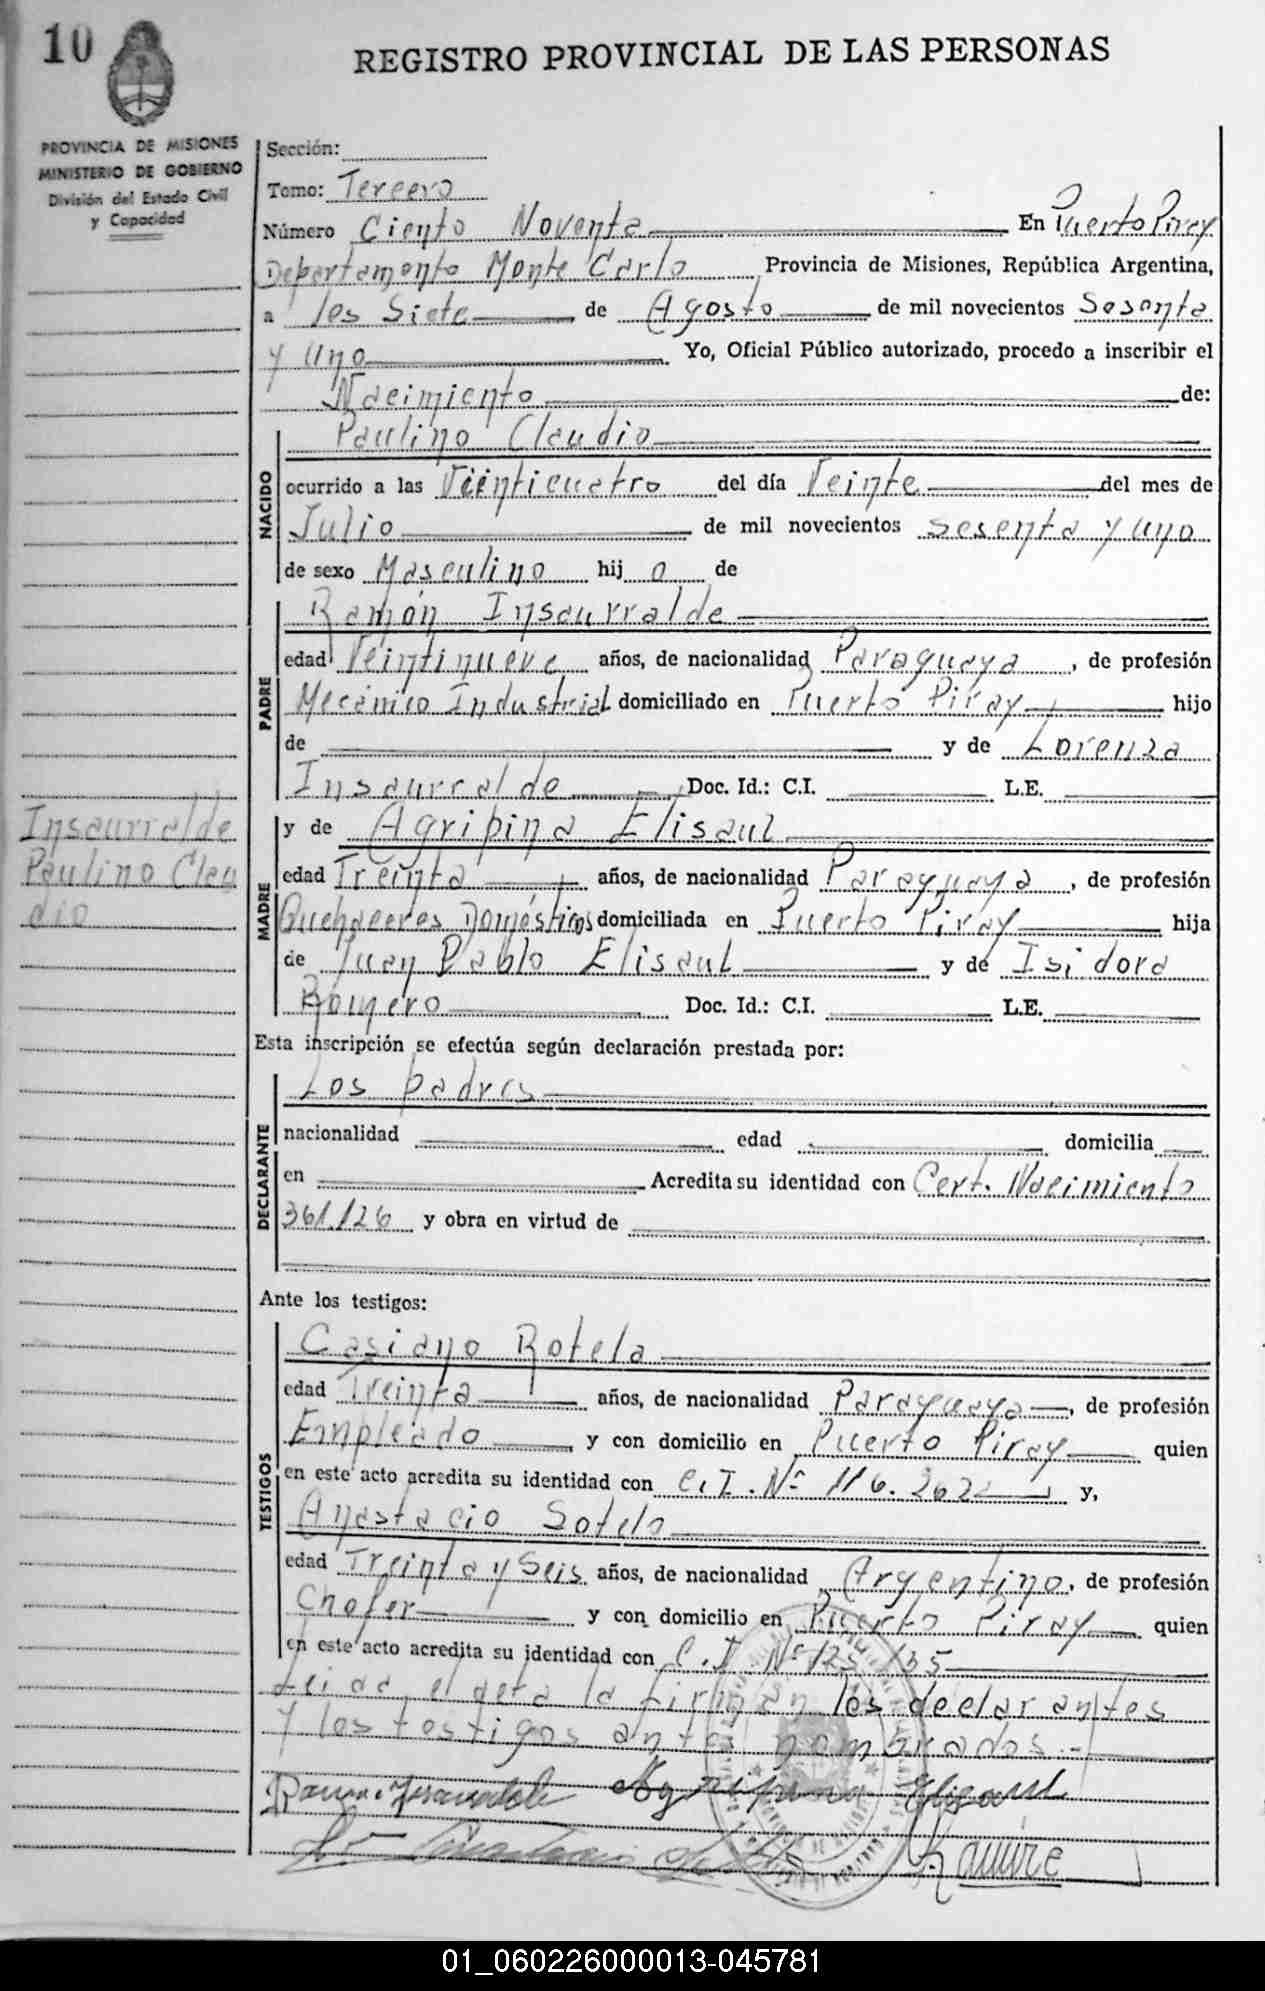 10
REGISTRO PROVINCIAL DE LAS PERSONAS
PROVINCIA DE MISIONES
MINISTERIO DE GOBIERNO
División del Estado Civil
y Capacidad
Sección:
Tomo: Tercero
Número Ciento Noventa En Puerto Piray
Departamento Monte Carlo Provincia de Misiones, República Argentina,
a los Siete de Agosto de mil novecientos Sesenta
y Uno. Yo, Oficial Público autorizado, procedo a inscribir el
Nacimiento de:
NACIDO
Paulino Claudio
ocurrido a las Veinticuatro del día Veinte del mes de
Julio de mil novecientos Sesenta y Uno
de sexo Masculino hij o de
PADRE
Ramón Insaurralde
edad Veintinueve años, de nacionalidad Paraguaya, de profesión
Mecánico Industrial domiciliado en Puerto Piray hijo
de y de Lorenza
Insaurralde Doc. Id.: C.I. L.E.
Insaurralde
Paulino Clau
dio
MADRE
y de Agripina Elisaul
edad Treinta años, de nacionalidad Paraguaya, de profesión
Quehaceres Domésticos domiciliada en Puerto Piray hija
de Juan Pablo Elisaul y de Isidora
Romero Doc. Id.: C.I. L.E.
Esta inscripción se efectúa según declaración prestada por:
DECLARANTE
Los padres
nacionalidad edad domicilia
en Acredita su identidad con Cert. Nacimiento
361.126 y obra en virtud de
Ante los testigos:
TESTIGOS
Casiano Rotela
edad Treinta años, de nacionalidad Paraguaya, de profesión
Empleado y con domicilio en Puerto Piray quien
en este acto acredita su identidad con C.I. Nº 116.262 y,
Anastacio Sotelo
edad Treinta y Seis años, de nacionalidad Argentino, de profesión
Chofer y con domicilio en Puerto Piray quien
en este acto acredita su identidad con C.I Nº 125.135
Leida el acta la firman los declarantes
y los testigos antes nombrados.-
Ramon Insaurralde Agripina Elisaul
Ramire
01_060226000013-045781